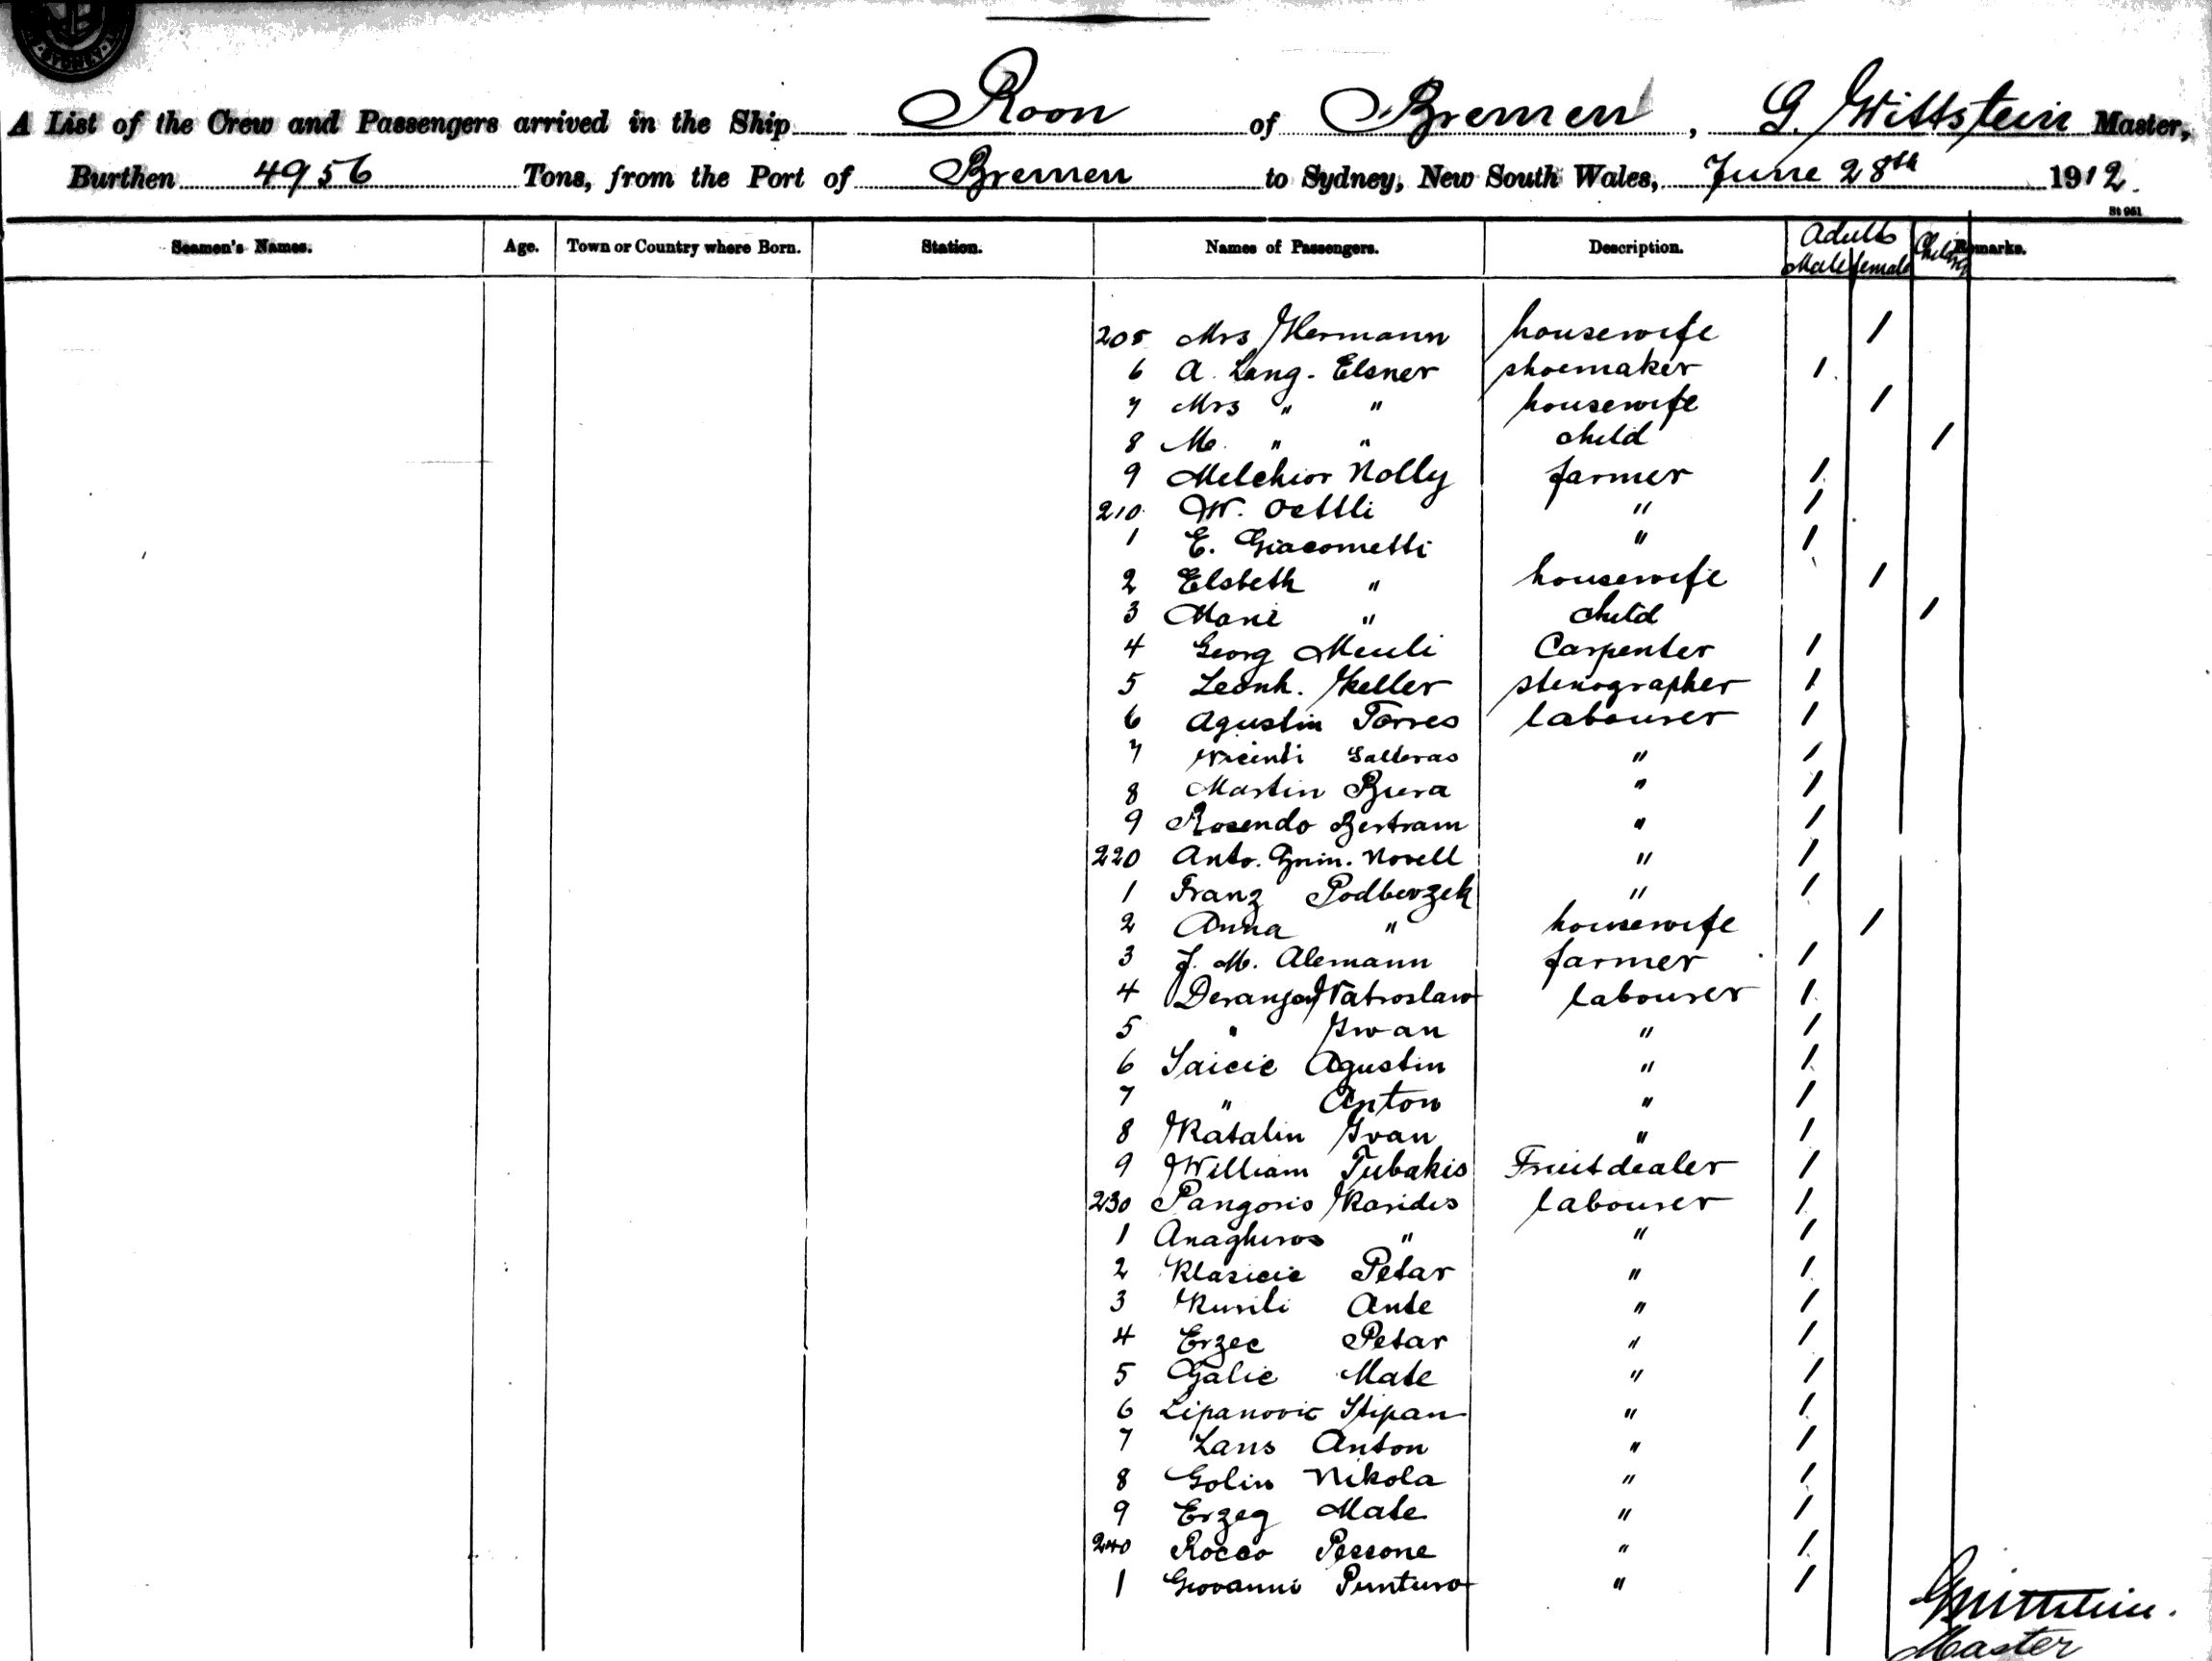 SYDNEY
A List of the Crew and Passengers arrived in the Ship Roon of Bremen, G. Wittstein Master,
Burthen 4956 Tons, from the Port of Bremen to Sydney, New South Wales, June 28th 1912.
St 951
Seamen's Names. Age. Town or Country where Born. Station. Names of Passengers. Description. Adults Male female Children Remarks.
205 Mrs Hermann housewife 1
6 A. Lang-Elsner shoemaker 1
7 Mrs " " housewife 1
8 M. " " child 1
9 Melchior Nolly farmer 1
210 W. Oettli " 1
1 E. Giacometti " 1
2 Elsbeth " housewife 1
3 Marie " child 1
4 Georg Meuli Carpenter 1
5 Leonh. Keller stenographer 1
6 Agustin Torres labourer 1
7 Vicinti Galteras " 1
8 Martin Bura " 1
9 Rosendo Bertram " 1
220 Anto. Novell " 1
1 Franz Podberzek " 1
2 Anna " housewife 1
3 J. M. Alemann farmer 1
4 Deranja Vatroslaw labourer 1
5 " Iwan " 1
6 Saicic Agustin " 1
7 " Anton " 1
8 Katalin Ivan " 1
9 William Tubakis Fruitdealer 1
230 Pangoris Karides labourer 1
1 Anaghiros " " 1
2 Klaricic Petar " 1
3 Kurili Ante " 1
4 Erzec Petar " 1
5 Galic Mate " 1
6 Lipanovic Stipan " 1
7 Lans Anton " 1
8 Golin Nikola " 1
9 Erzeg Mate " 1
240 Rocco Pessone " 1
1 Giovanni Punturo " 1
G. Wittstein.
Master